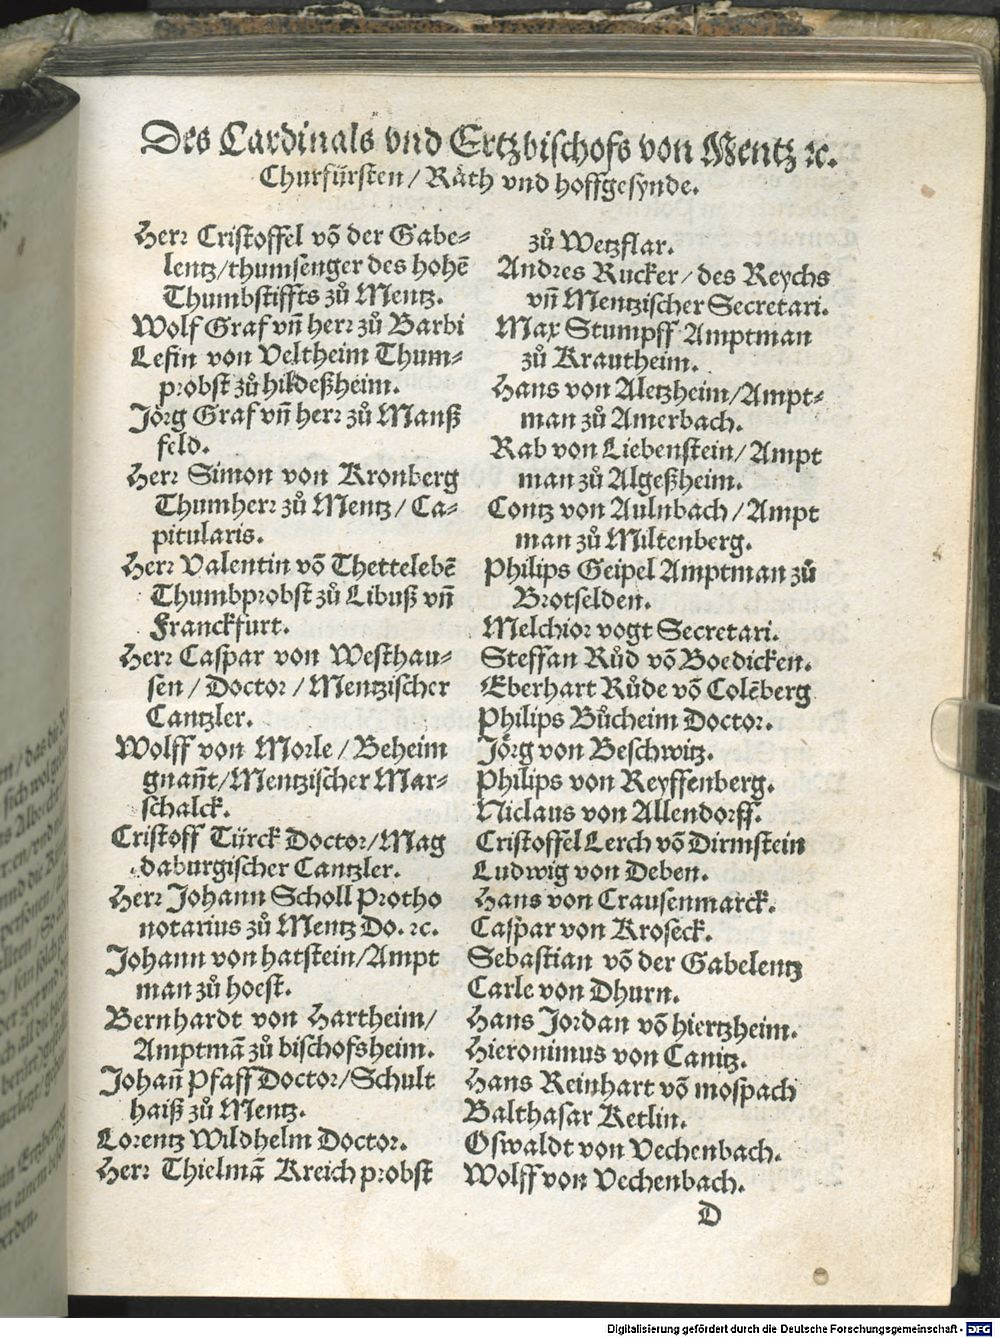 Des Cardinals vnd Ertzbischofs von Mentz ꝛc.
Churfürsten / Räth vnd hoffgesynde.
Herr Cristoffel võ der Gabe⸗
lentz/thumsenger des hohẽ
Thumbstiffts zů Mentz.
Wolf Graf vñ herr zů Barbi
Lefin von Veltheim Thum⸗
probst zů hildeßheim.
Jörg Graf vñ herr zů Manß
feld.
Herr Simon von Kronberg
Thumherr zů Mentz / Ca⸗
pitularis.
Herr Valentin võ Thettelebẽ
Thumbprobst zů Libuß vñ
Franckfurt.
Herr Caspar von Westhau⸗
sen / Doctor / Mentzischer
Cantzler.
Wolff von Morle / Beheim
gnañt/Mentzischer Mar⸗
schalck.
Cristoff Türck Doctor/Mag
daburgischer Cantzler.
Herr Johann Scholl Protho
notarius zů Mentz Do. ꝛc.
Johann von hatstein/Ampt
man zů hoest.
Bernhardt von Hartheim/
Amptmã zů bischofsheim.
Johañ Pfaff Doctor/Schult
haiß zů Mentz.
Lorentz Wildhelm Doctor.
Herr Thielmã Kreich probst
zů Wetzflar.
Andres Rucker / des Reychs
vñ Mentzischer Secretari.
Max Stumpff Amptman
zů Krautheim.
Hans von Aletzheim/Ampt⸗
man zů Amerbach.
Rab von Liebenstein/Ampt
man zů Algeßheim.
Contz von Aulnbach / Ampt
man zů Miltenberg.
Philips Geipel Amptman zů
Brotselden.
Melchior vogt Secretari.
Steffan Růd võ Boedicken.
Eberhart Růde võ Colẽberg
Philips Bůcheim Doctor.
Jörg von Beschwitz.
Philips von Reyffenberg.
Niclaus von Allendorff.
Cristoffel Lerch võ Dirmstein
Ludwig von Deben.
Hans von Crausenmarck.
Caspar von Kroseck.
Sebastian võ der Gabelentz
Carle von Dhurn.
Hans Jordan võ hiertzheim.
Hieronimus von Canitz.
Hans Reinhart võ mospach
Balthasar Ketlin.
Oswaldt von Vechenbach.
Wolff von Vechenbach.
D
Digitalisierung gefördert durch die Deutsche Forschungsgemeinschaft - DFG